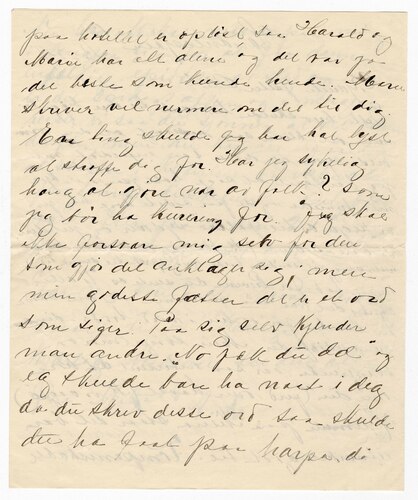 paa hotellet er opløst saa Harald og
Marie har alt alene og det var jo
det beste som kunde hende. Marie
skriver vel nærmere om det til dig
Een ting skulde jeg har hat lyst
at straffe dig for. Har jeg sykelig
hang at gjøre nar av folk? Som
jeg bør ha kurering for. Jeg skal
ikke forsvare mig selv for den
som gjør det anklager sig; men
min godeste det er et ord
som siger. Paa sig selv kjender
man andre. "No fik du det" og
eg skulde bare ha naat i deg
da du skrev desse ord saa skulde
du ha faat paa harpa, di